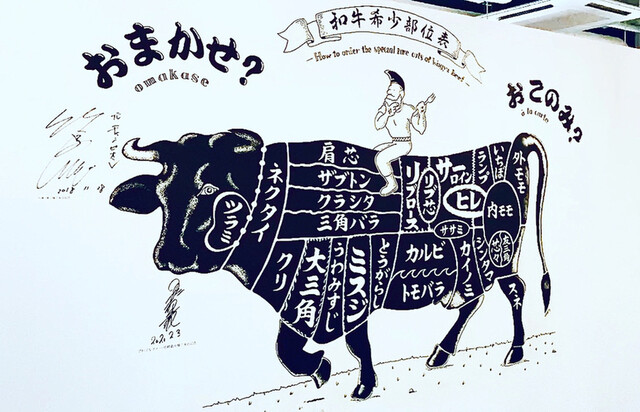 和牛希少部位表
How to order the special rare cuts of Wagyu Beef
おまかせ?
omakase
おこのみ?
à la carte
ツラミ
ネクタイ
肩芯
ザブトン
クラシタ
三角バラ
クリ
大三角
うわみすじ
ミスジ
とうがらし
リブロース
リブ芯
サーロイン
ヒレ
ササミ
カルビ
トモバラ
カイノミ
ランプ
いちぼ
外モモ
内モモ
シンタマ
芯々
スネ
2018 11
2021.2.3